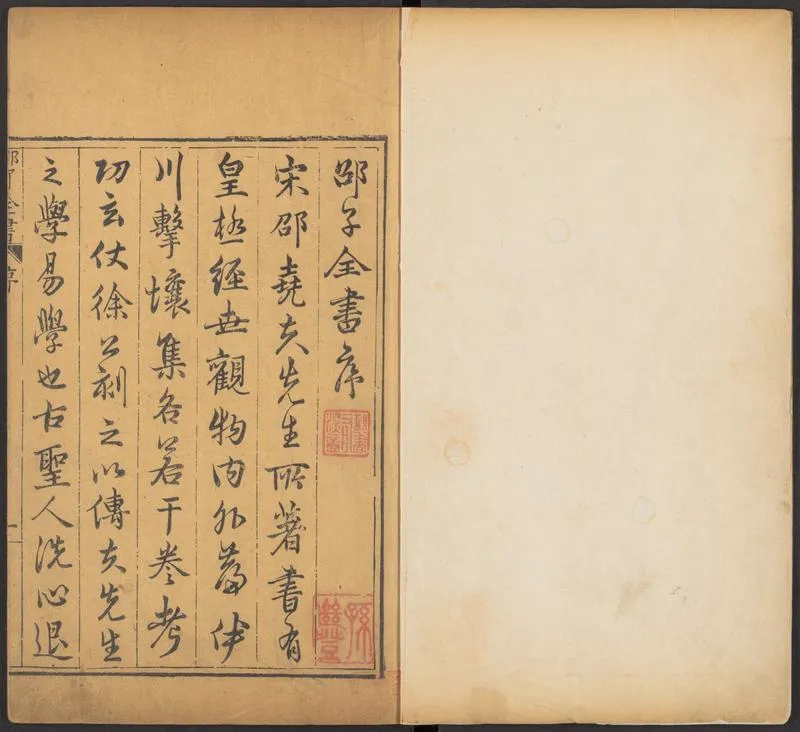 邵子全書序
宋邵堯夫先生所著書有
皇極經世觀物內外篇伊
川擊壤集各若干卷考
功玄仗徐公刻之以傳夫先生
之學易學也古聖人洗心退
邵子全書 序
一
孫